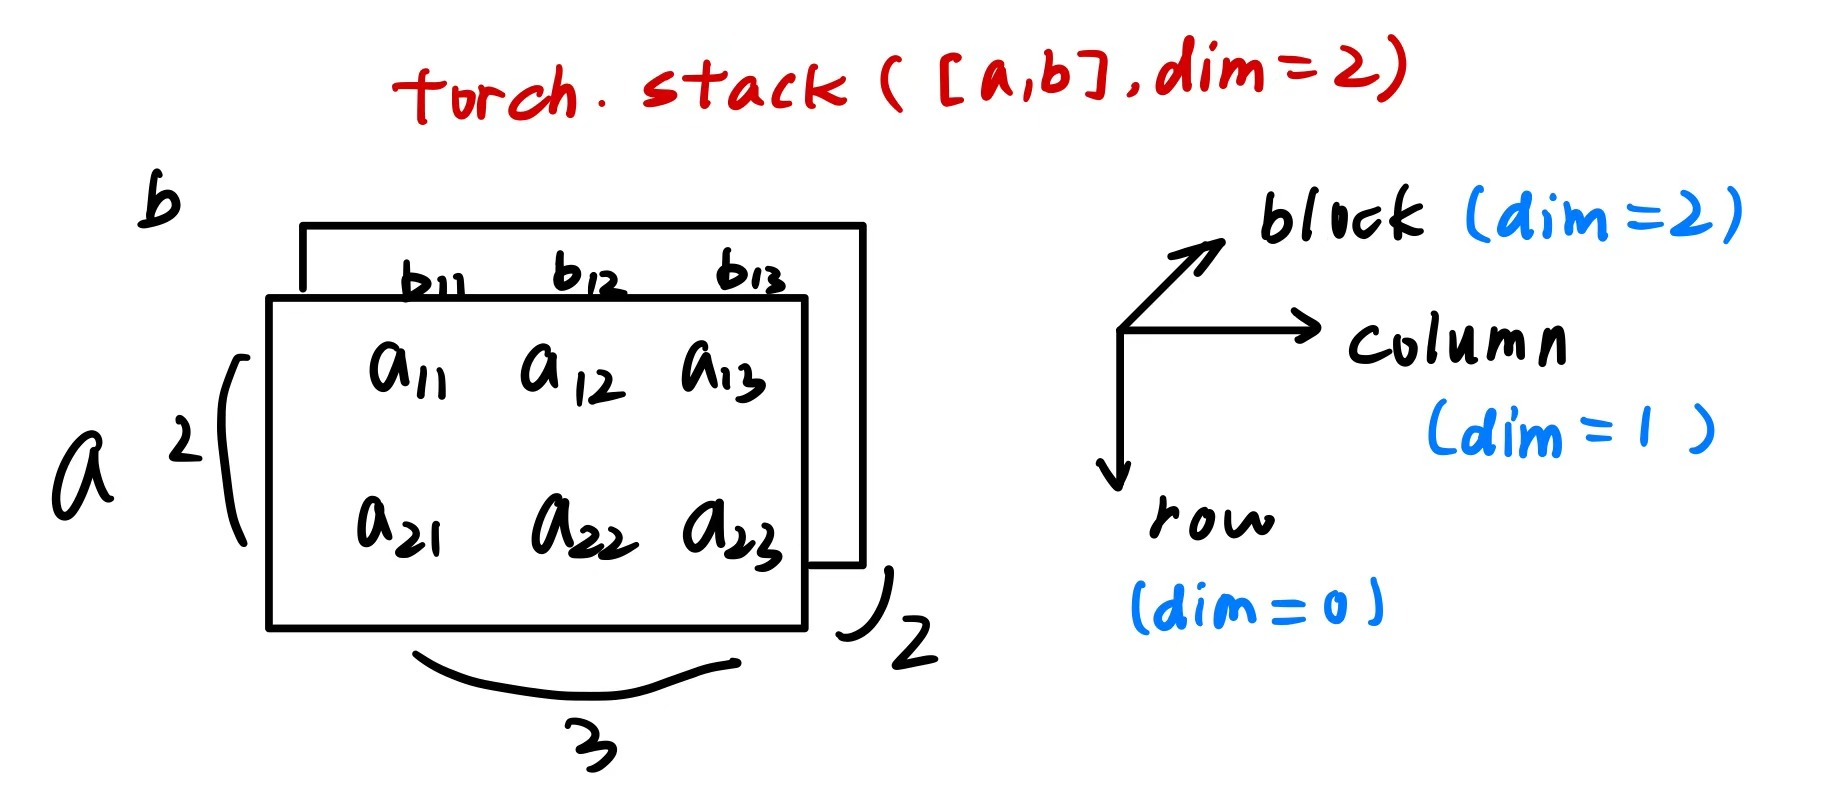 torch. stack ([a,b],dim=2)
b
b11 b12 b13
a11 a12 a13
a 2
a21 a22 a23
2
3
block (dim=2)
column
(dim=1)
row
(dim=0)